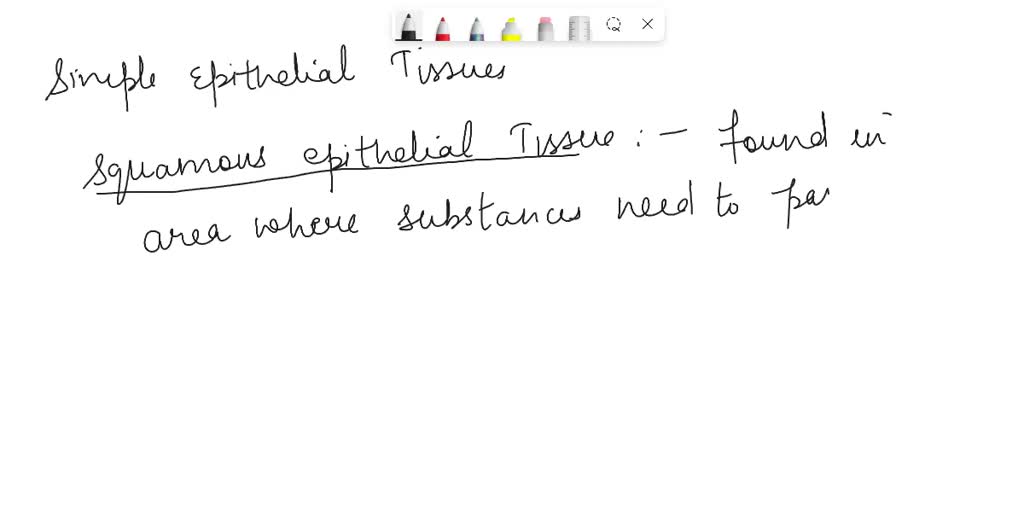 Simple Epithelial Tissues
Squamous epithelial Tissue :- found in
area where substances need to pa